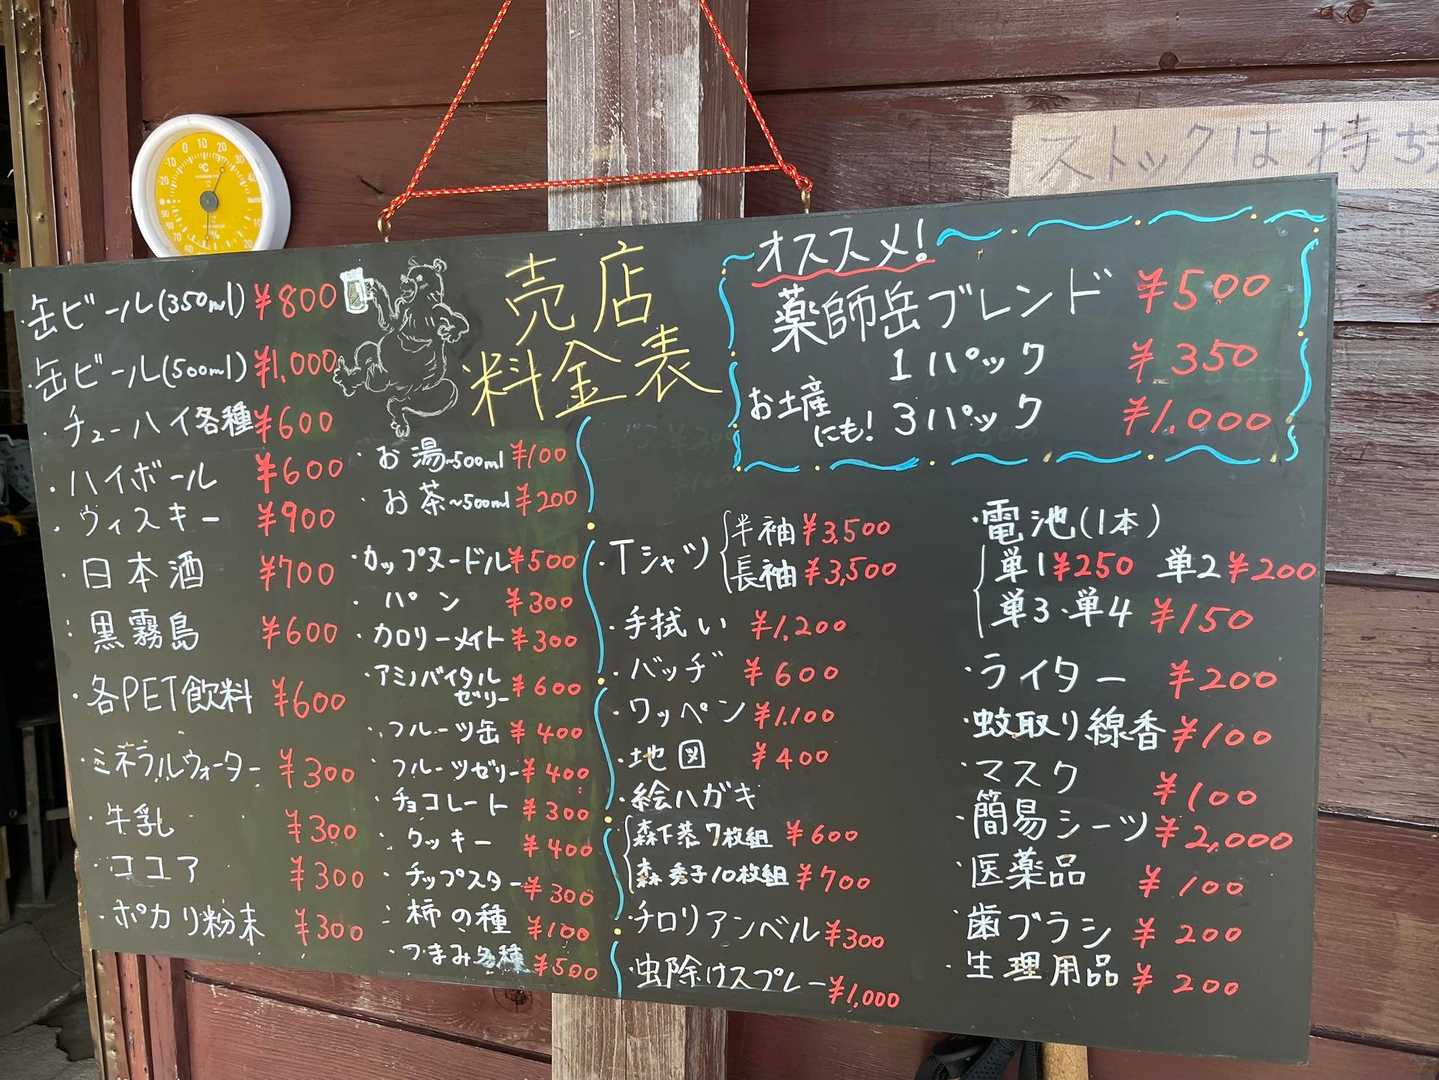 ストックは持ち
売店
料金表
・缶ビール(350ml) ¥800
・缶ビール(500ml) ¥1,000
・チューハイ各種 ¥600
・ハイボール ¥600
・ウィスキー ¥900
・日本酒 ¥700
・黒霧島 ¥600
・各PET飲料 ¥600
・ミネラルウォーター ¥300
・牛乳 ¥300
・ココア ¥300
・ポカリ粉末 ¥300
・お湯~500ml ¥100
・お茶~500ml ¥200
・カップヌードル ¥500
・パン ¥300
・カロリーメイト ¥300
・アミノバイタル
ゼリー ¥600
・フルーツ缶 ¥400
・フルーツゼリー ¥400
・チョコレート ¥300
・クッキー ¥400
・チップスター ¥300
・柿の種 ¥100
・つまみ各種 ¥500
オススメ!
薬師岳ブレンド ¥500
1パック ¥350
お土産
にも! 3パック ¥1,000
・Tシャツ 半袖 ¥3,500
長袖 ¥3,500
・手拭い ¥1,200
・バッヂ ¥600
・ワッペン ¥1,100
・地図 ¥400
・絵ハガキ
森下恭 7枚組 ¥600
森秀子 10枚組 ¥700
・チロリアンベル ¥300
・虫除けスプレー ¥1,000
・電池(1本)
単1 ¥250 単2 ¥200
単3・単4 ¥150
・ライター ¥200
・蚊取り線香 ¥100
・マスク ¥100
・簡易シーツ ¥2,000
・医薬品 ¥100
・歯ブラシ ¥200
・生理用品 ¥200